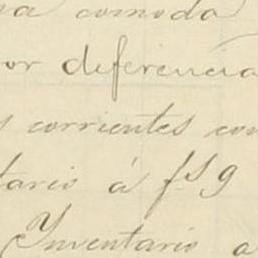 a comoda
or diferencia
s corrientes con
tario á fs 9
Inventario a